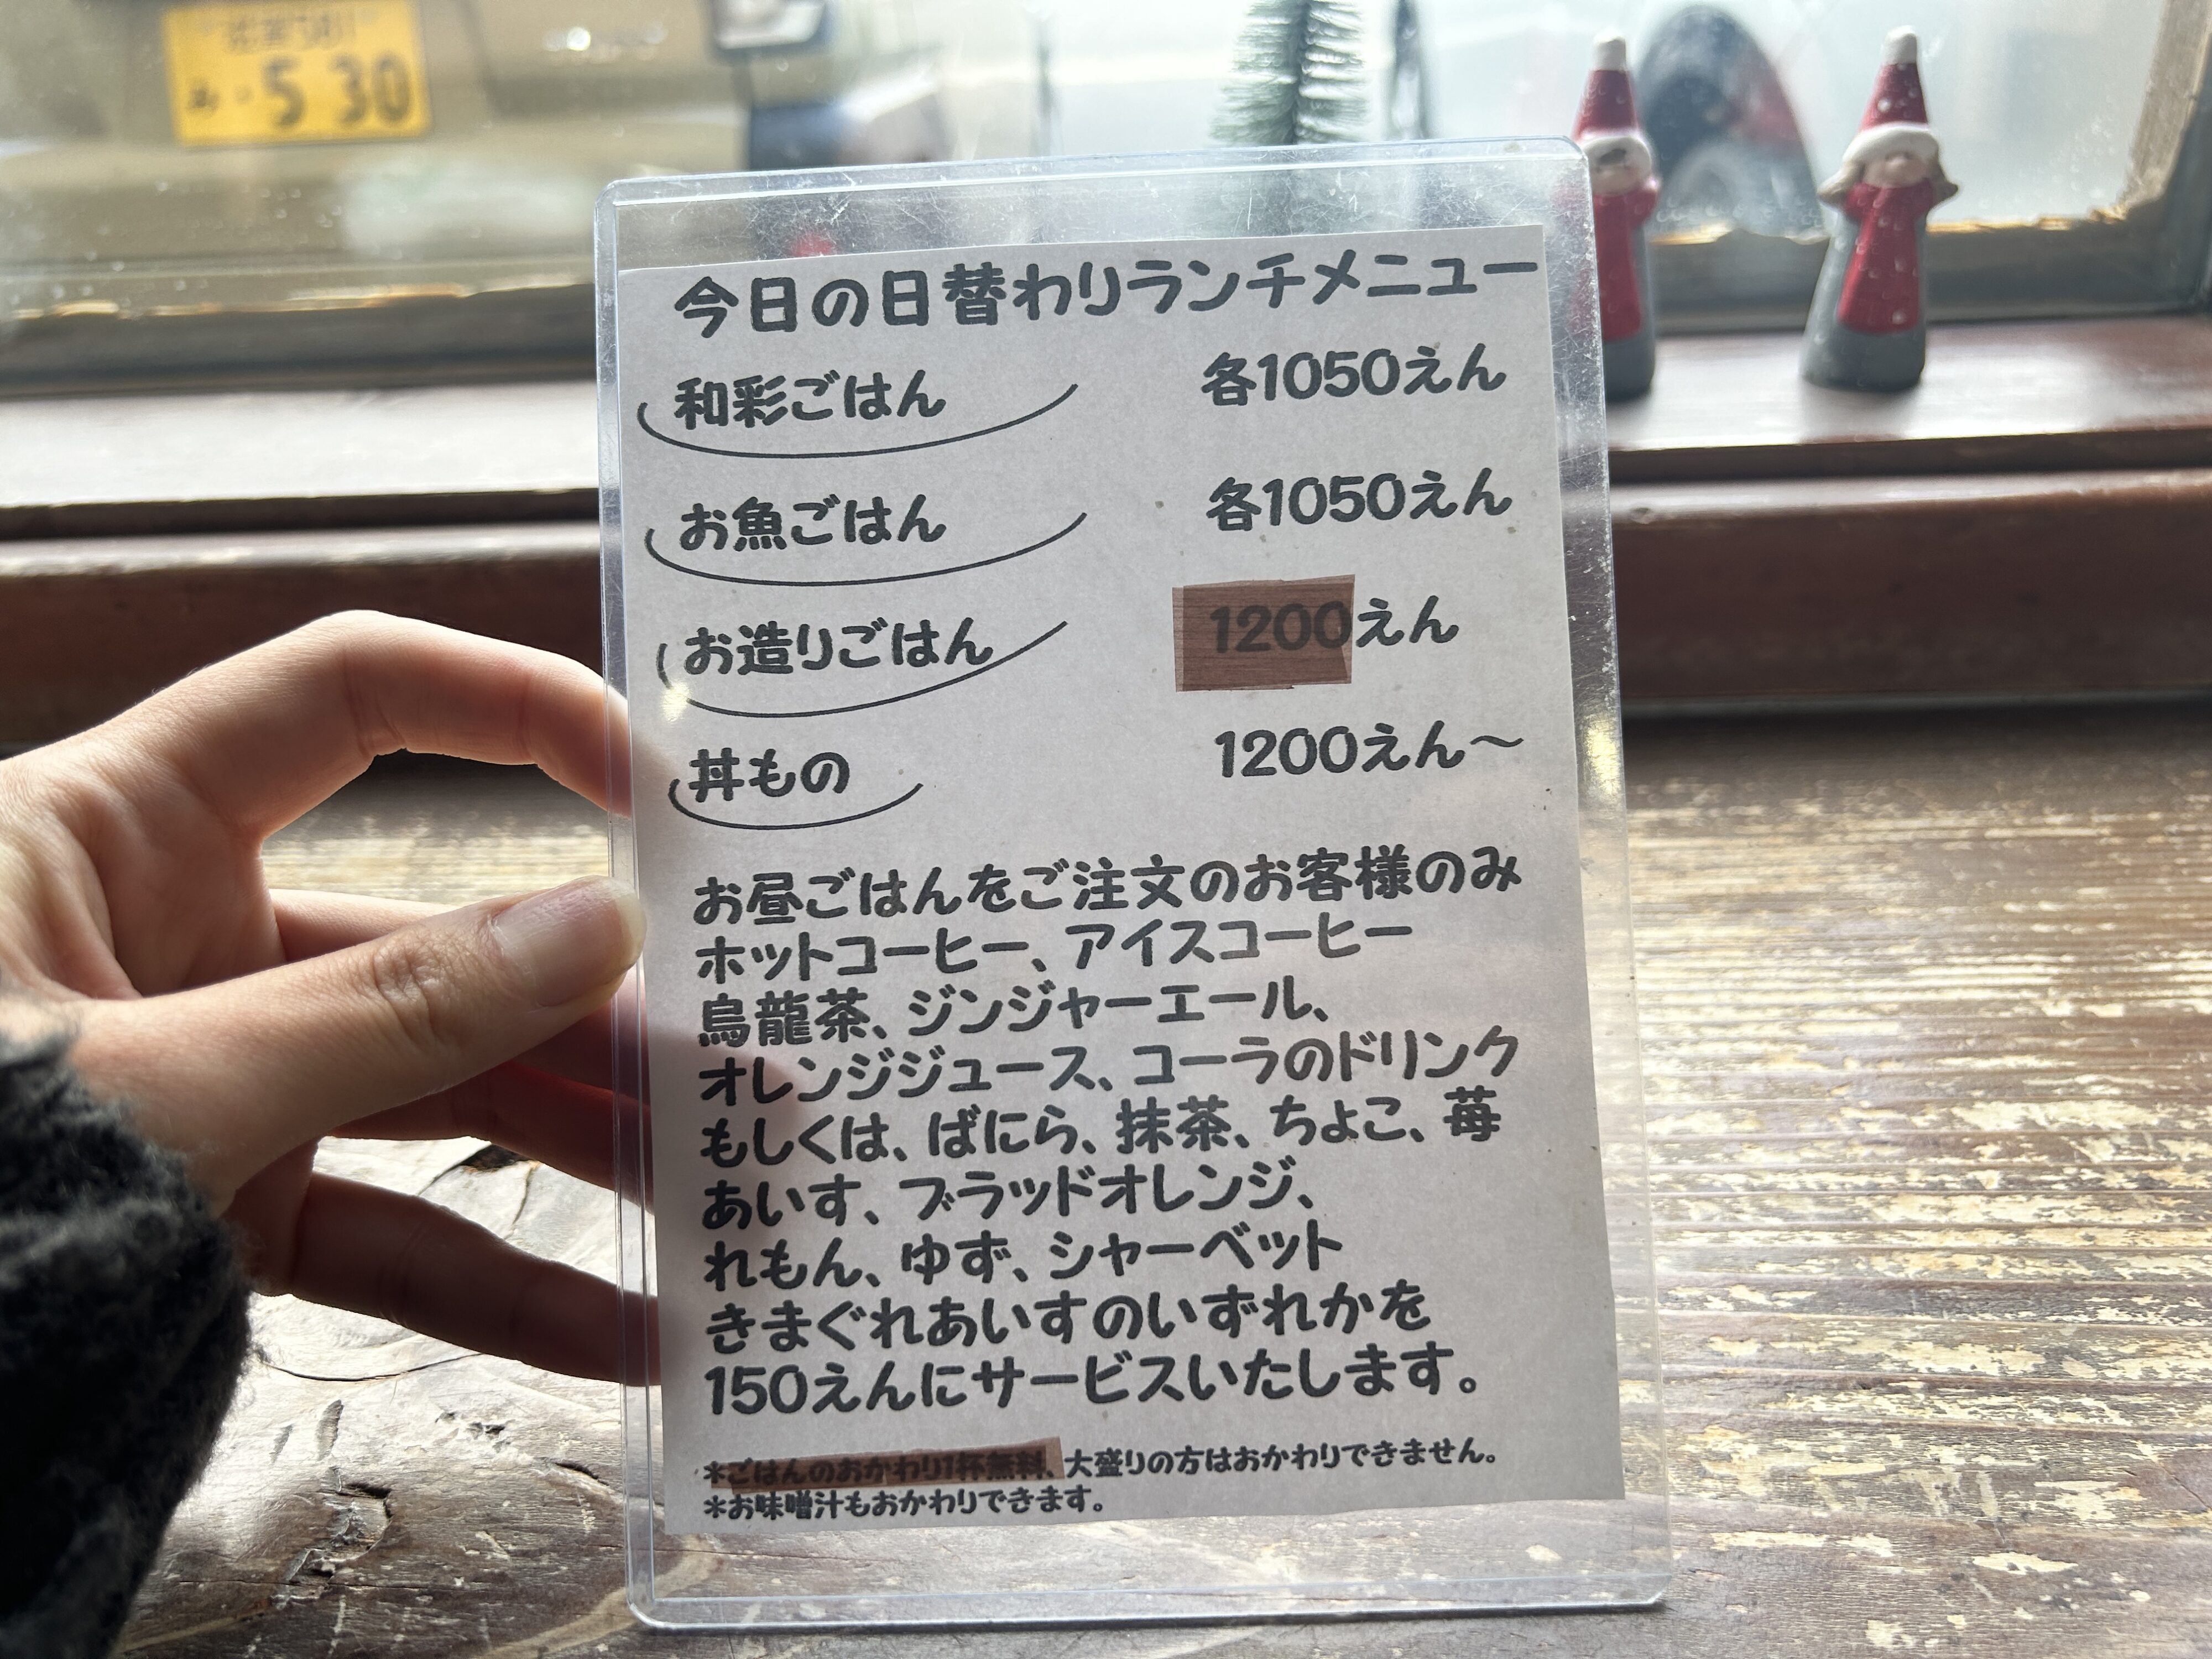 5 30
今日の日替わりランチメニュー
和彩ごはん 各1050えん
お魚ごはん 各1050えん
お造りごはん 1200えん
丼もの 1200えん〜
お昼ごはんをご注文のお客様のみ
ホットコーヒー、アイスコーヒー
烏龍茶、ジンジャーエール、
オレンジジュース、コーラのドリンク
もしくは、ばにら、抹茶、ちょこ、苺
あいす、ブラッドオレンジ、
れもん、ゆず、シャーベット
きまぐれあいすのいずれかを
150えんにサービスいたします。
*ごはんのおかわり1杯無料、大盛りの方はおかわりできません。
*お味噌汁もおかわりできます。